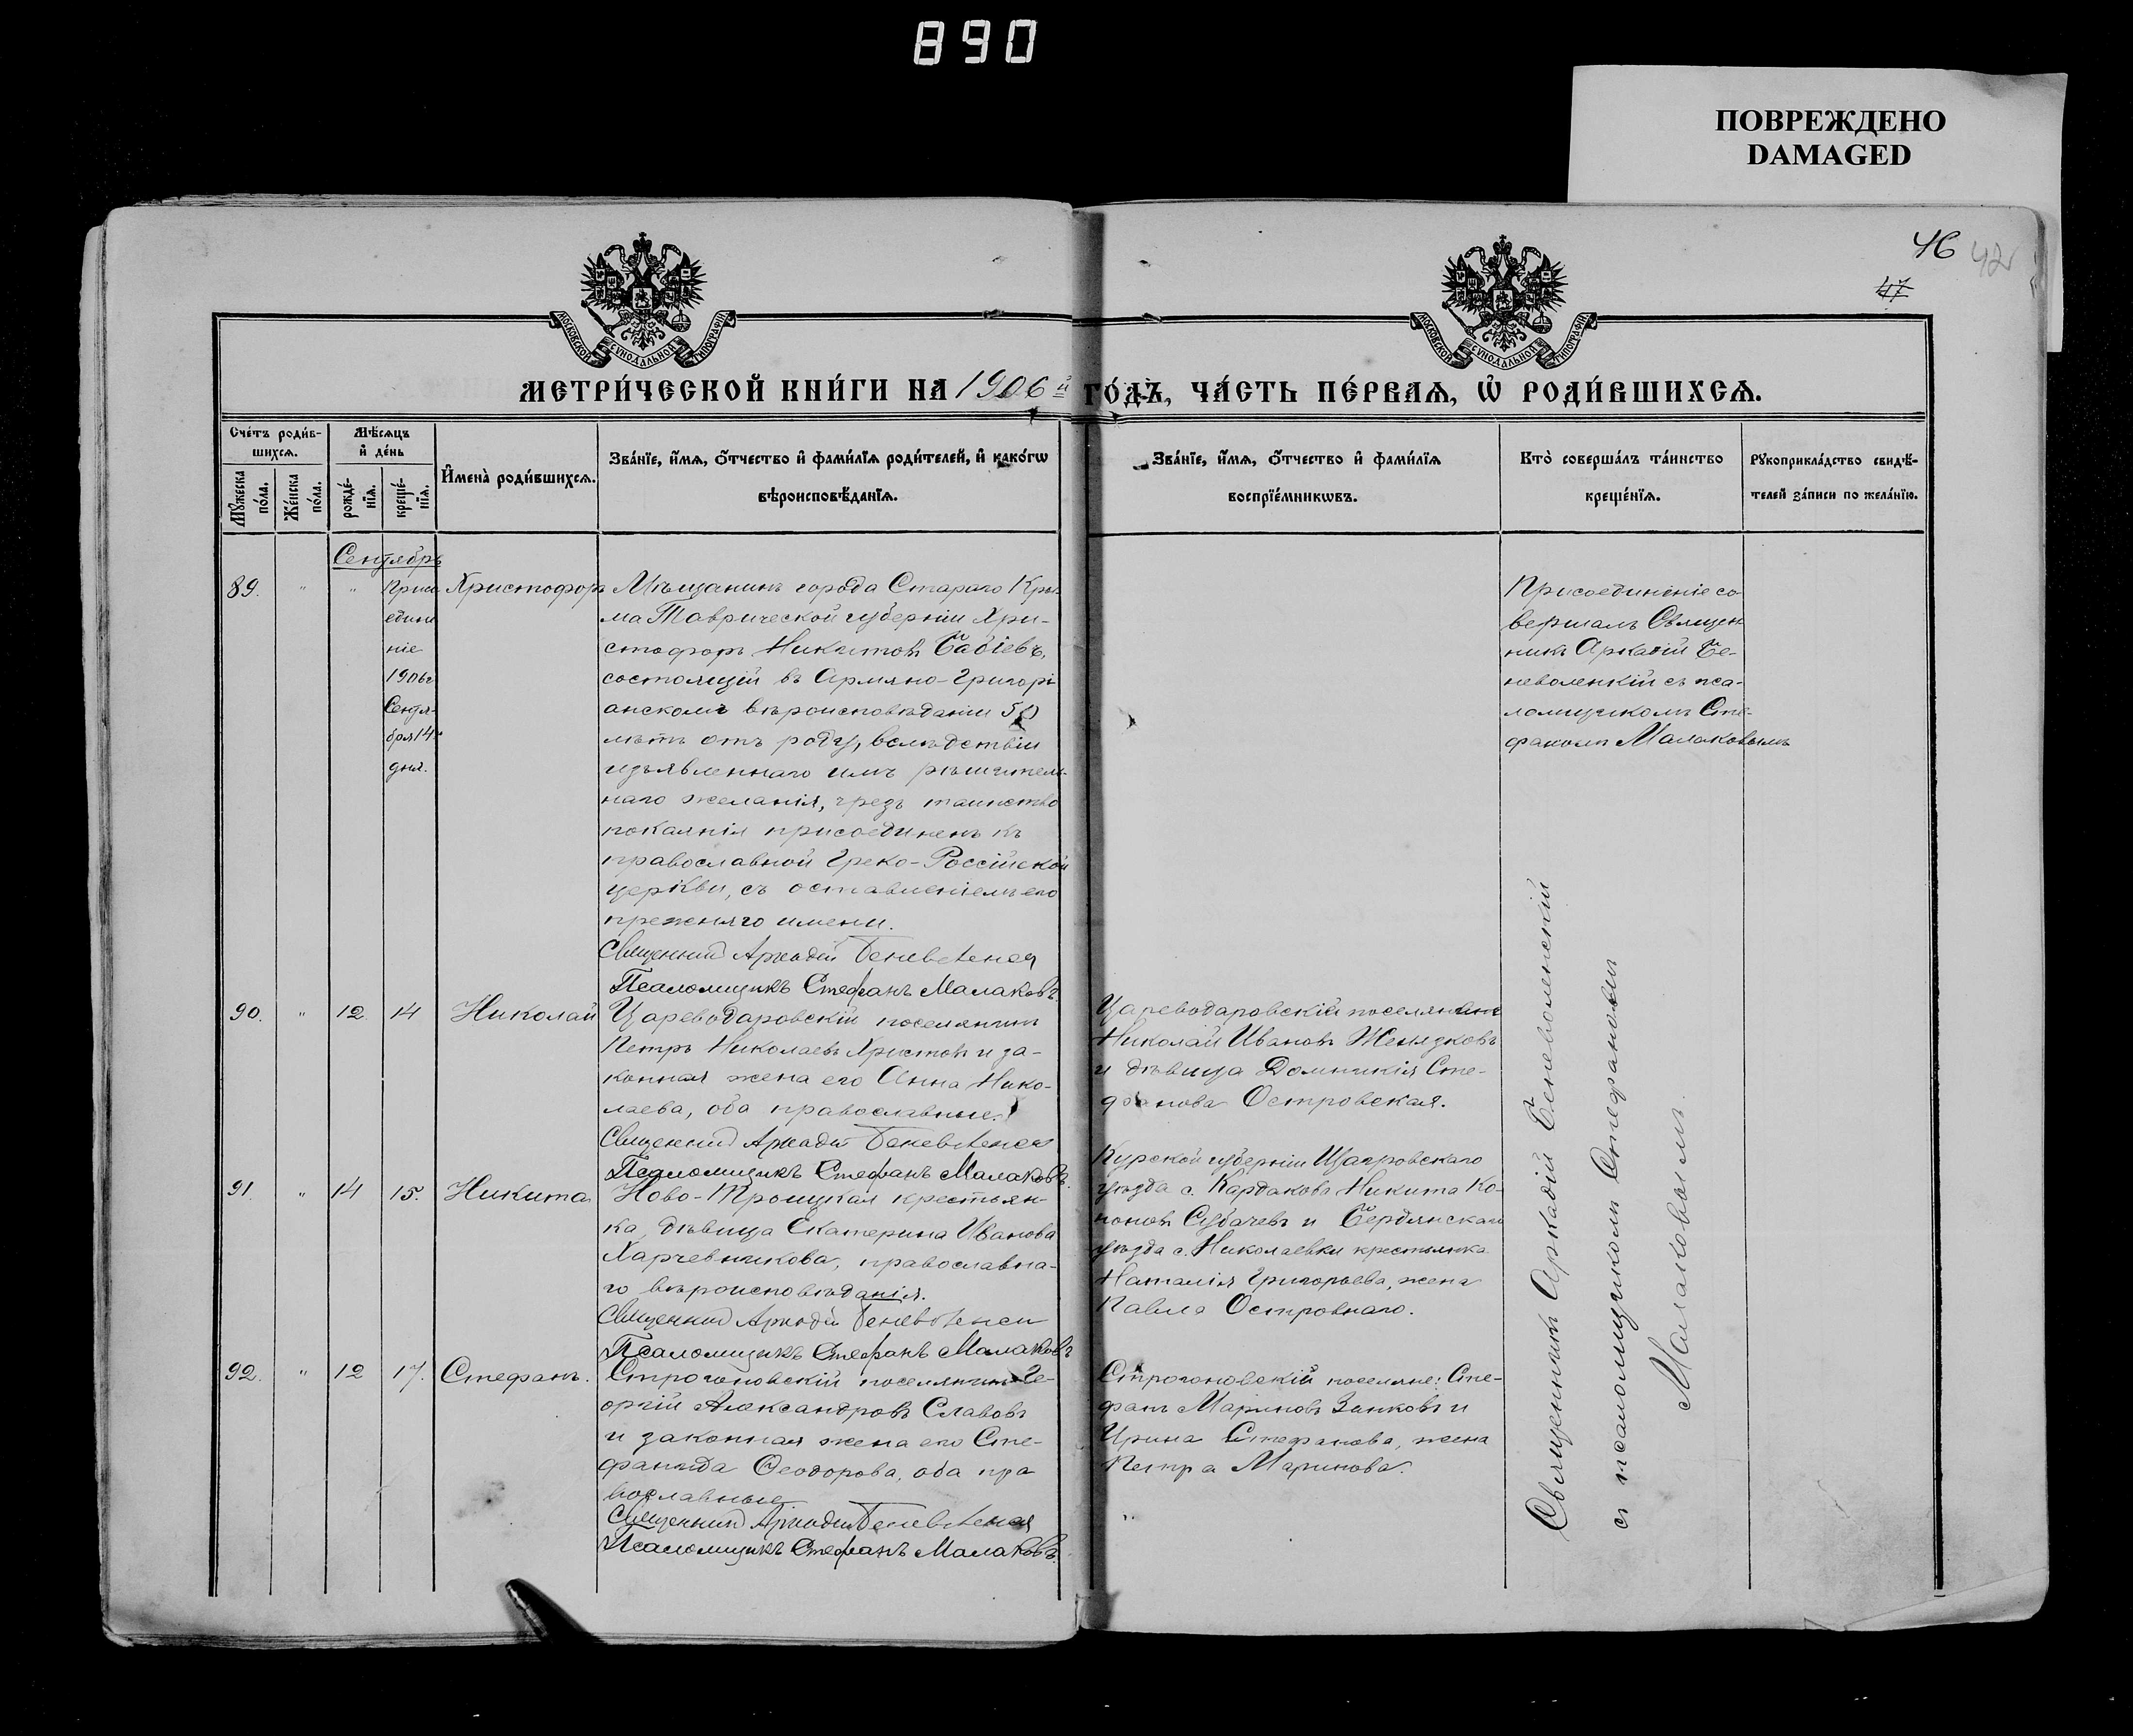 890
ПОВРЕЖДЕНО
DAMAGED
46 42
47
МОСКОВСКОЙ СѴНОДАЛЬНОЙ ТИПОГРАФІИ
МОСКОВСКОЙ СѴНОДАЛЬНОЙ ТИПОГРАФІИ
МЕТРИ́ЧЕСКОЙ КНИ́ГИ НА 1906 й ГО́ДЪ, ЧА́СТЬ ПЕ́РВАѦ, Ѡ҆ РОДИ́ВШИХСѦ.
Сче́тъ роди́вшихсѧ.
Мꙋ́жеска по́ла.
Же́нска по́ла.
Мѣ́сѧцъ и҆ де́нь
рожде́-
нїѧ.
креще́-
нїѧ.
И҆мена̀ роди́вшихсѧ.
Зва́нїе, и҆́мѧ, ѻ҆́тчество и҆ фами́лїѧ роди́телей, и҆ како́гѡ
вѣроисповѣ́данїѧ.
Зва́нїе, и҆́мѧ, ѻ҆́тчество и҆ фами́лїѧ
воспрїе́мникѡвъ.
Кто̀ соверша́лъ та́инство
креще́нїѧ.
Рꙋкоприкла́дство свидѣ́-
телей за́писи по жела́нїю.
Сентябрь
89. " "
Присо
едине
ніе
1906г
Сентя-
бря 14
дня.
Христофоръ
Мѣщанинъ города Стараго Кры-
ма Таврической губерніи Хри-
стофоръ Никитовъ Бабіевъ,
состоящій въ Армяно-Григорі-
анскомъ вѣроисповѣданіи 50
лѣтъ отъ роду, вслѣдствіи
изъявленнаго имъ рѣшитель-
наго желанія, чрезъ таинство
покаянія присоединенъ къ
православной Греко-Россійской
церкви, съ оставленіемъ его
прежняго имени.
Священникъ Аркадій Беневоленскій
Псаломщикъ Стефанъ Малаковъ.
Присоединеніе со
вершалъ Священ
никъ Аркадій Бе-
неволенскій съ пса-
ломщикомъ Сте-
фаномъ Малаковымъ
90. " 12 14 Николай
Цареводаровскій поселянинъ
Петръ Николаевъ Христовъ и за-
конная жена его Анна Нико-
лаева, оба православные.
Священникъ Аркадій Беневоленскій
Псаломщикъ Стефанъ Малаковъ.
Цареводаровскій поселянинъ
Николай Ивановъ Женязковъ
и дѣвица Домникія Сте-
фанова Островская.
91. " 14 15. Никита
Ново-Троицкая крестьян-
ка, дѣвица Екатерина Иванова
Харчевникова, православна-
го вѣроисповѣданія.
Священникъ Аркадій Беневоленскій
Псаломщикъ Стефанъ Малаковъ
Курской губерніи Щигровскаго
уѣзда с. Кардакова Никита Ко-
нонов Субачевъ и Бердянскаго
уѣзда с. Николаевки крестьянка
Наталія Григорьева, жена
Павла Островнаго.
92. " 12 17. Стефанъ.
Строгоновскій поселянинъ Ге-
оргій Александровъ Славовъ
и законная жена его Сте-
фанида Ѳеодорова, оба пра
вославные
Священникъ Аркадій Беневоленскій
Псаломщикъ Стефанъ Малаковъ.
Строгоновскій поселяне: Сте-
фанъ Мариновъ Занковъ и
Ирина Стефанова, жена
Петра Маринова.
Священникъ Аркадій Беневоленскій
съ псаломщикомъ Стефановымъ
Малаковымъ.